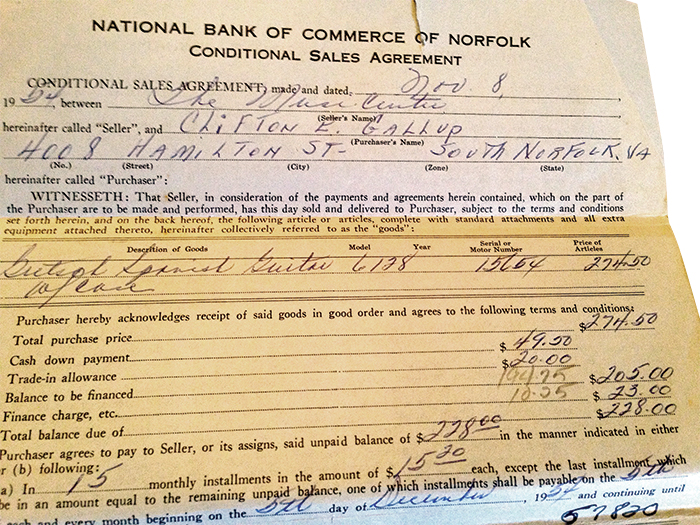 NATIONAL BANK OF COMMERCE OF NORFOLK
CONDITIONAL SALES AGREEMENT
CONDITIONAL SALES AGREEMENT, made and dated, Nov. 8,
1954, between The Music Center
(Seller's Name)
hereinafter called "Seller", and CLIFTON E. GALLUP
(Purchaser's Name)
4008 HAMILTON ST- SOUTH NORFOLK, VA
(No.) (Street) (City) (Zone) (State)
hereinafter called "Purchaser":
WITNESSETH: That Seller, in consideration of the payments and agreements herein contained, which on the part of
the Purchaser are to be made and performed, has this day sold and delivered to Purchaser, subject to the terms and conditions
set forth herein, and on the back hereof, the following article or articles, complete with standard attachments and all extra
equipment attached thereto, hereinafter collectively referred to as the "goods":
Description of Goods Model Year Serial or Motor Number Price of Articles
Gretsch Spanish Guitar 6128 15664 274.50
w/case
Purchaser hereby acknowledges receipt of said goods in good order and agrees to the following terms and conditions:
Total purchase price $274.50
Cash down payment $49.50
Trade-in allowance $20.00
Balance to be financed $205.00
Finance charge, etc. $23.00
Total balance due of $228.00
Purchaser agrees to pay to Seller, or its assigns, said unpaid balance of $228.00 in the manner indicated in either
or (b) following:
a) In 15 monthly installments in the amount of $15.20 each, except the last installment, which
be in an amount equal to the remaining unpaid balance, one of which installments shall be payable on the 5th
each and every month beginning on the 5th day of December, 1954 and continuing until